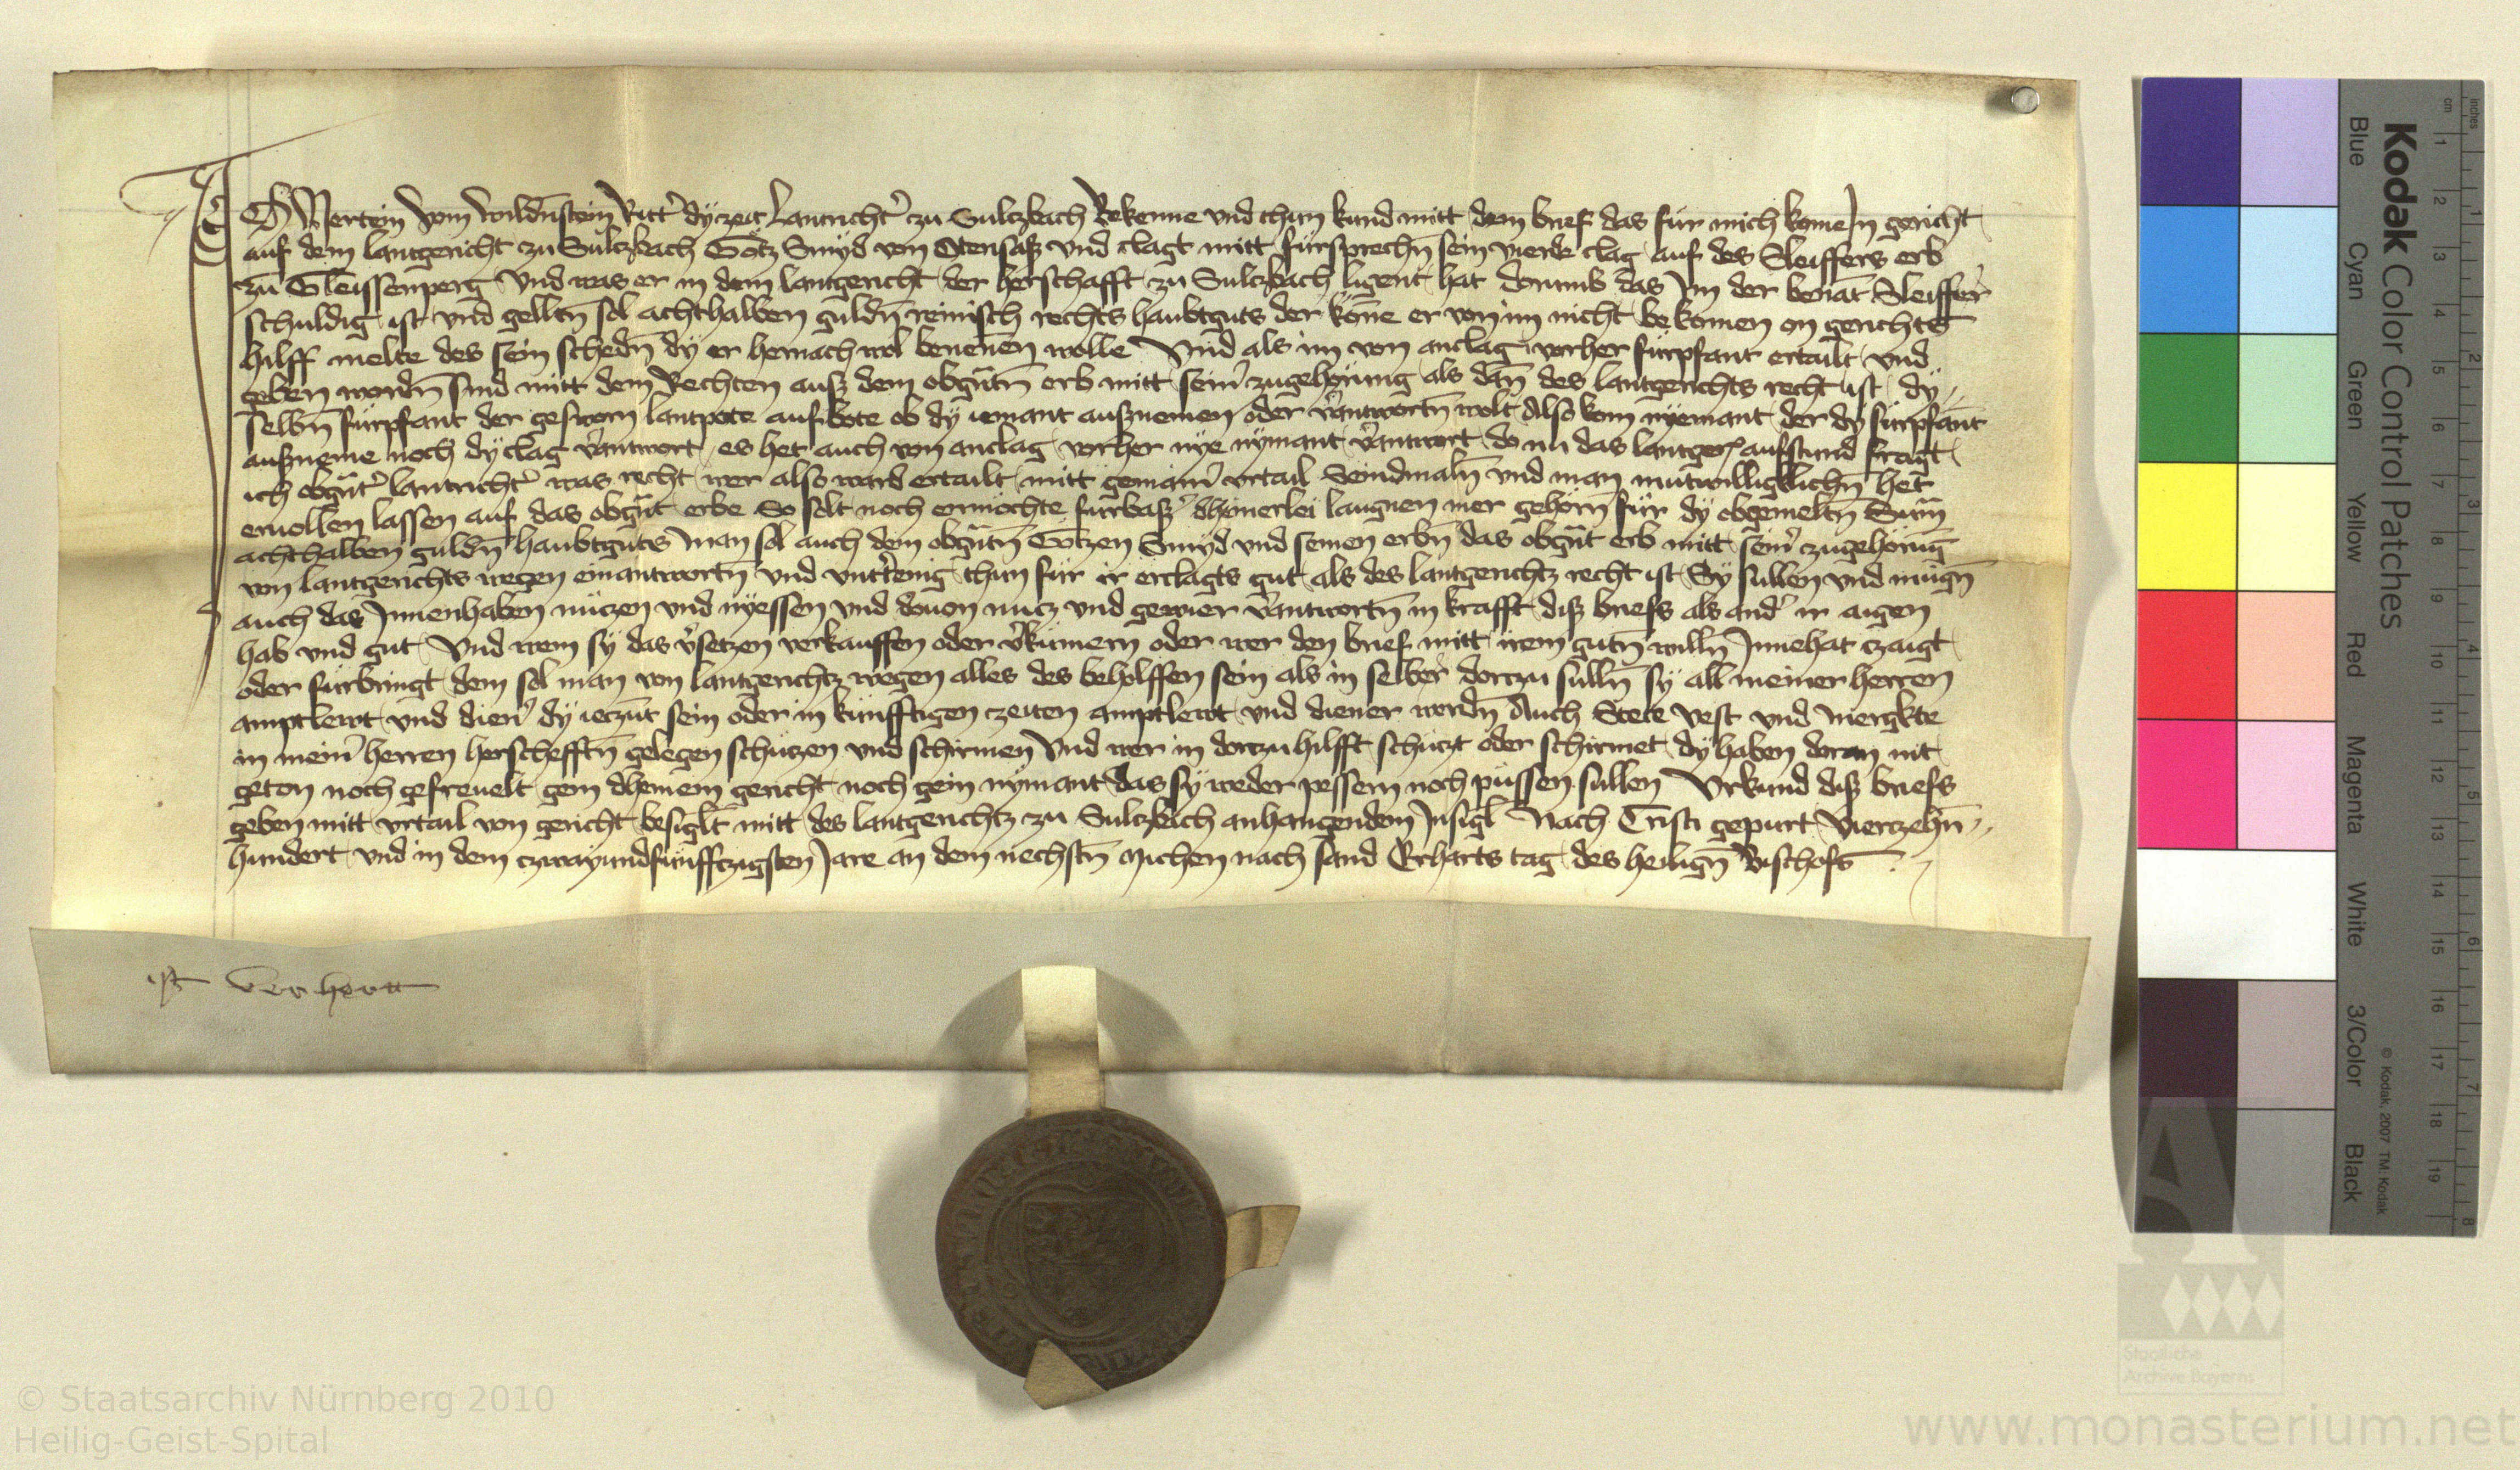 Ich Mertein vom Wildnstein Ritter dÿ zeit Lantrichter zu Sulczbach Bekenne vnd thun kund mitt dem brief das für mich kome In gericht
auf dem lantgericht zu Sulczbach Götz Smÿd von Otensaß vnd clagt mitt fürsprechn̄ sein vierde clag auf des Sleiffers erb
zu Gleissenperg Vnd was er in dem lantgericht der herschafft zu Sulczbach ligent hat dorumb das Im der benāt Sleiffer
schuldig ist vnd gelltn̄ sol achthalben guldn̄ reinisch rechts haubtguts der köne er von im nicht bekomen on gerichts
hilff melte des sein schedn̄ dÿ er hernach wol benenen wolle Vnd als im von anclag vorher fürpfant ertailt vnd
geben wordn̄ sind mitt dem Rechten auß dem obgn̄tn̄ erb mitt seinr zugehörung als dan̄ des lantgerichts recht ist dÿ
selbn̄ fürpfant der gesworn lantpote aufbote ob dÿ iemant außnemen oder v'antwortn̄ wolt Also kom nÿemant der dÿ fürpfant
außneme noch dÿ clag v'antwort es het auch von anclag vorher nÿe nÿmant v'antwort do nu das lantger' aufstund fragt
ich obgn̄t' lantricht' was recht wer also ward ertailt mitt gemain' vrtail Seindmaln̄ vnd man mutwilligklichn̄ het
ervollen lassen auf das obgn̄t erbe So solt noch enmöchte fürbaß' dheinerlei laugnen mer gehörn̄ für dÿ obgemeltn̄ Sum̄
achthalben guldn̄ haubtguts Man sol auch dem obgn̄tn̄ Götzen Smÿd vnd seinen erbn̄ das obgn̄t erb mitt sein' czugehörūg
von lantgerichts wegen einantwortn̄ vnd vnt'tenig thun für ir erclagts gut als des lantgerichtz recht ist Sÿ sullen vnd mügn̄
auch das Innenhaben nüczen vnd nÿessen vnd douon nucz vnd gewer v'antwortn̄ in krafft diß briefs als and' ir aigen
hab vnd gut Vnd wem sÿ das v'setzen verkauffen oder v'kümern oder wer den brief mitt irem gutn̄ willn̄ Innehat czaigt
oder fürbringt dem sol man von lantgerichtz wegen alles des beholffen sein als in selber dorczu sulln̄ sÿ all meiner herren
amptlewt vnd dien' dÿ ieczūt sein oder in künfftigen czeiten amptlewt vnd diener werdn̄ Auch Stete Vest vnd Mergkte
in mein' herren herschefftn̄ gelegen schüczen vnd schirmen Vnd wer in dorczu hilfft schüczt oder schirmet dÿ haben doran nit
geton noch gefreuelt gein dheinem gericht noch gein nÿmant das sÿ weder pessern noch püssen sullen Vrkund diß briefs
geben mitt vrtail von gericht besiglt mitt des lantgerichtz zu Sulczbach anhangendem Insigl Nach Cristi gepurt Vierczehn̄
hundert vnd in dem czwayundfünffczigsten Jare an dem nechstn̄ Michen nach sand Erharts tag des heilign̄ Bischofs
ist verhert
Kodak Color Control Patches
Blue Cyan Green Yellow Red Magenta White 3/Color Black
© Kodak, 2007 TM: Kodak
cm 1 2 3 4 5 6 7 8 9 10 11 12 13 14 15 16 17 18 19
inches 1 2 3 4 5 6 7 8
Staatliche
Archive Bayerns
© Staatsarchiv Nürnberg 2010
Heilig-Geist-Spital
www.monasterium.net